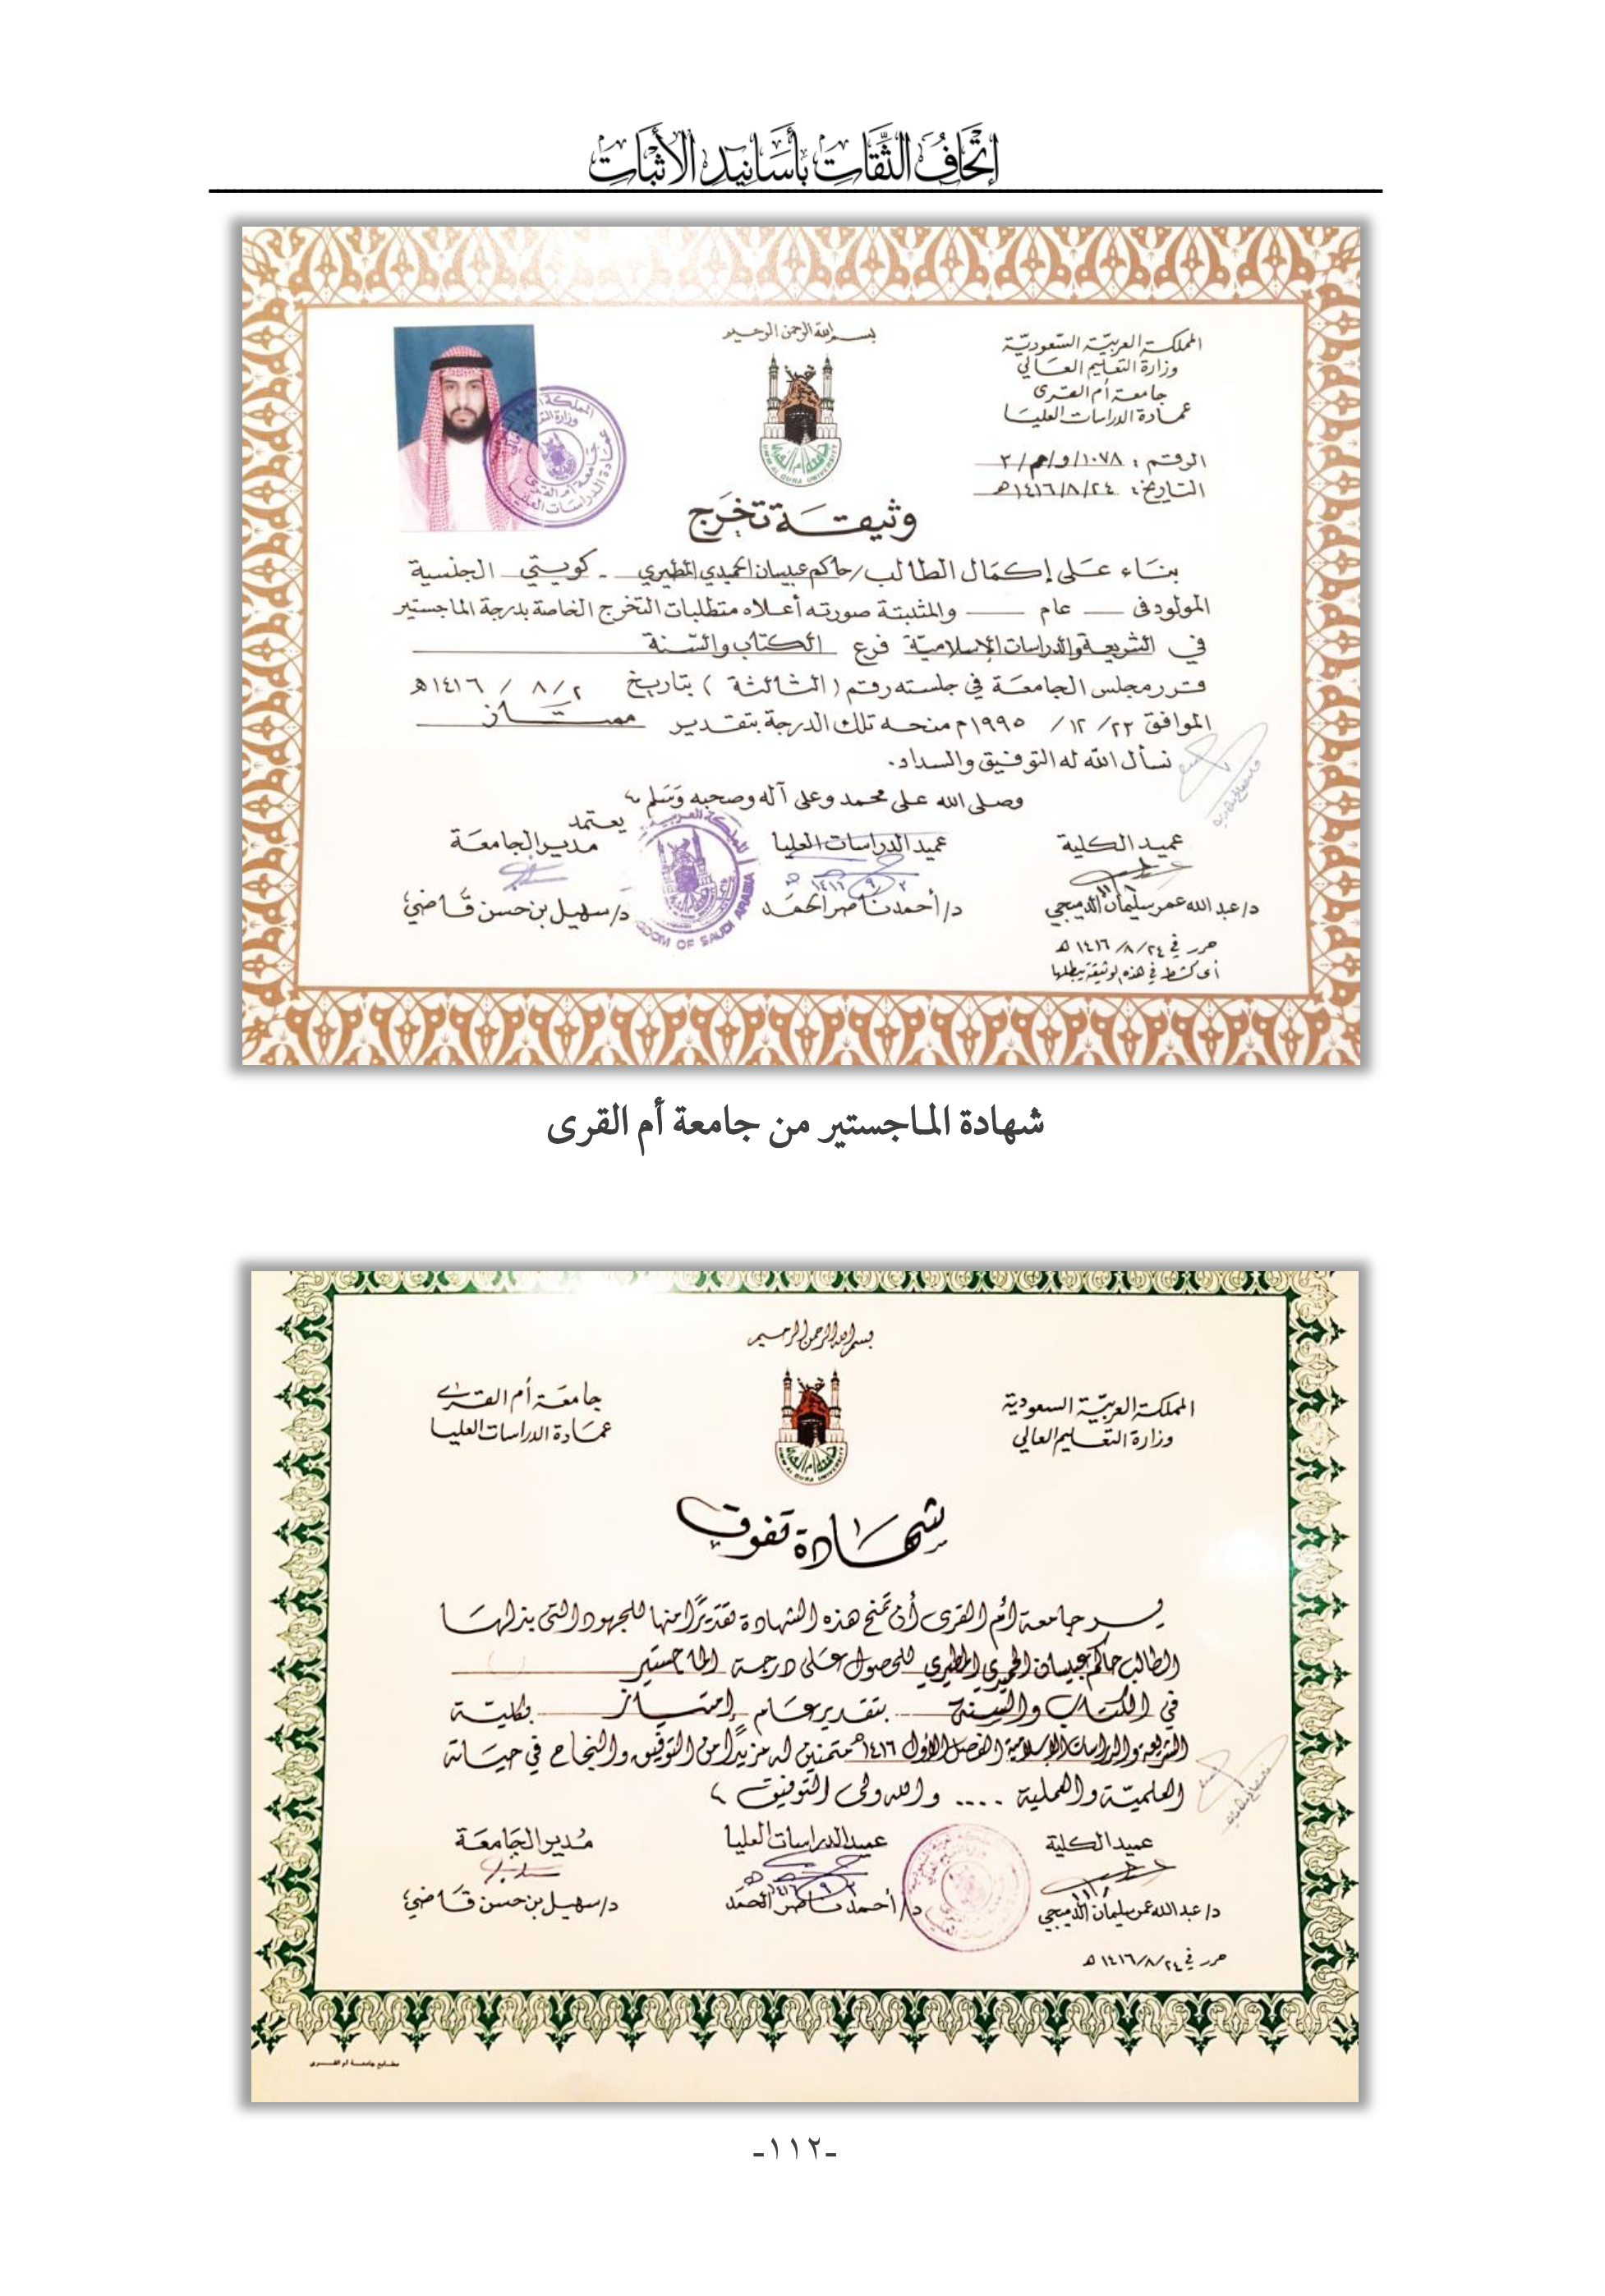 إتحاف الثقات بأسانيد الأثبات
بسم الله الرحمن الرحيم
المملكة العربية السعودية
وزارة التعليم العالي
جامعة أم القرى
عمادة الدراسات العليا
الرقم : ١٠٧٨/و/م/٣
التاريخ : ١٤١٦/٨/٢٤هـ
UMM AL QURA UNIVERSITY
وثيقة تخرج
بناء على إكمال الطالب/حاكم عبيسان الحميدي المطيري - كويتي الجنسية
المولود في — عام — والمثبتة صورته أعلاه متطلبات التخرج الخاصة بدرجة الماجستير
في الشريعة والدراسات الإسلامية فرع الكتاب والسنة
قرر مجلس الجامعة في جلسته رقم ( الثالثة ) بتاريخ ٢ / ٨ / ١٤١٦هـ
الموافق ٢٣/ ١٢ / ١٩٩٥م منحه تلك الدرجة بتقدير ممتاز
نسأل الله له التوفيق والسداد.
وصلى الله على محمد وعلى آله وصحبه وسلم ،
يعتمد
عميد الكلية عميد الدراسات العليا مدير الجامعة
د/عبد الله عمر سليمان الدميجي د/أحمد ناصر الحمد د/سهيل بن حسن قاضي
حرر في ١٤١٦/٨/٢٤ هـ
أى كشط في هذه الوثيقة يبطلها
شهادة الماجستير من جامعة أم القرى
بسم الله الرحمن الرحيم
المملكة العربية السعودية
وزارة التعليم العالي
جامعة أم القرى
عمادة الدراسات العليا
شهادة تفوق
يسر جامعة أم القرى أن تمنح هذه الشهادة تقديرًا منها للجهود التى بذلها
الطالب حاكم عبيسان الحميدي المطيري للحصول على درجة الماجستير
في الكتاب والسنة بتقدير عام إمتياز بكلية
الشريعة والدراسات الإسلامية الفصل الأول ١٤١٦هـ متمنين له مزيدًا من التوفيق والنجاح في حياته
العلمية والعملية .... والله ولى التوفيق ،
عميد الكلية عميد الدراسات العليا مدير الجامعة
د/عبد الله عمر سليمان الدميجي د/أحمد ناصر الحمد د/سهيل بن حسن قاضي
حرر في ١٤١٦/٨/٢٤ هـ
مطابع جامعة أم القرى
-١١٢-